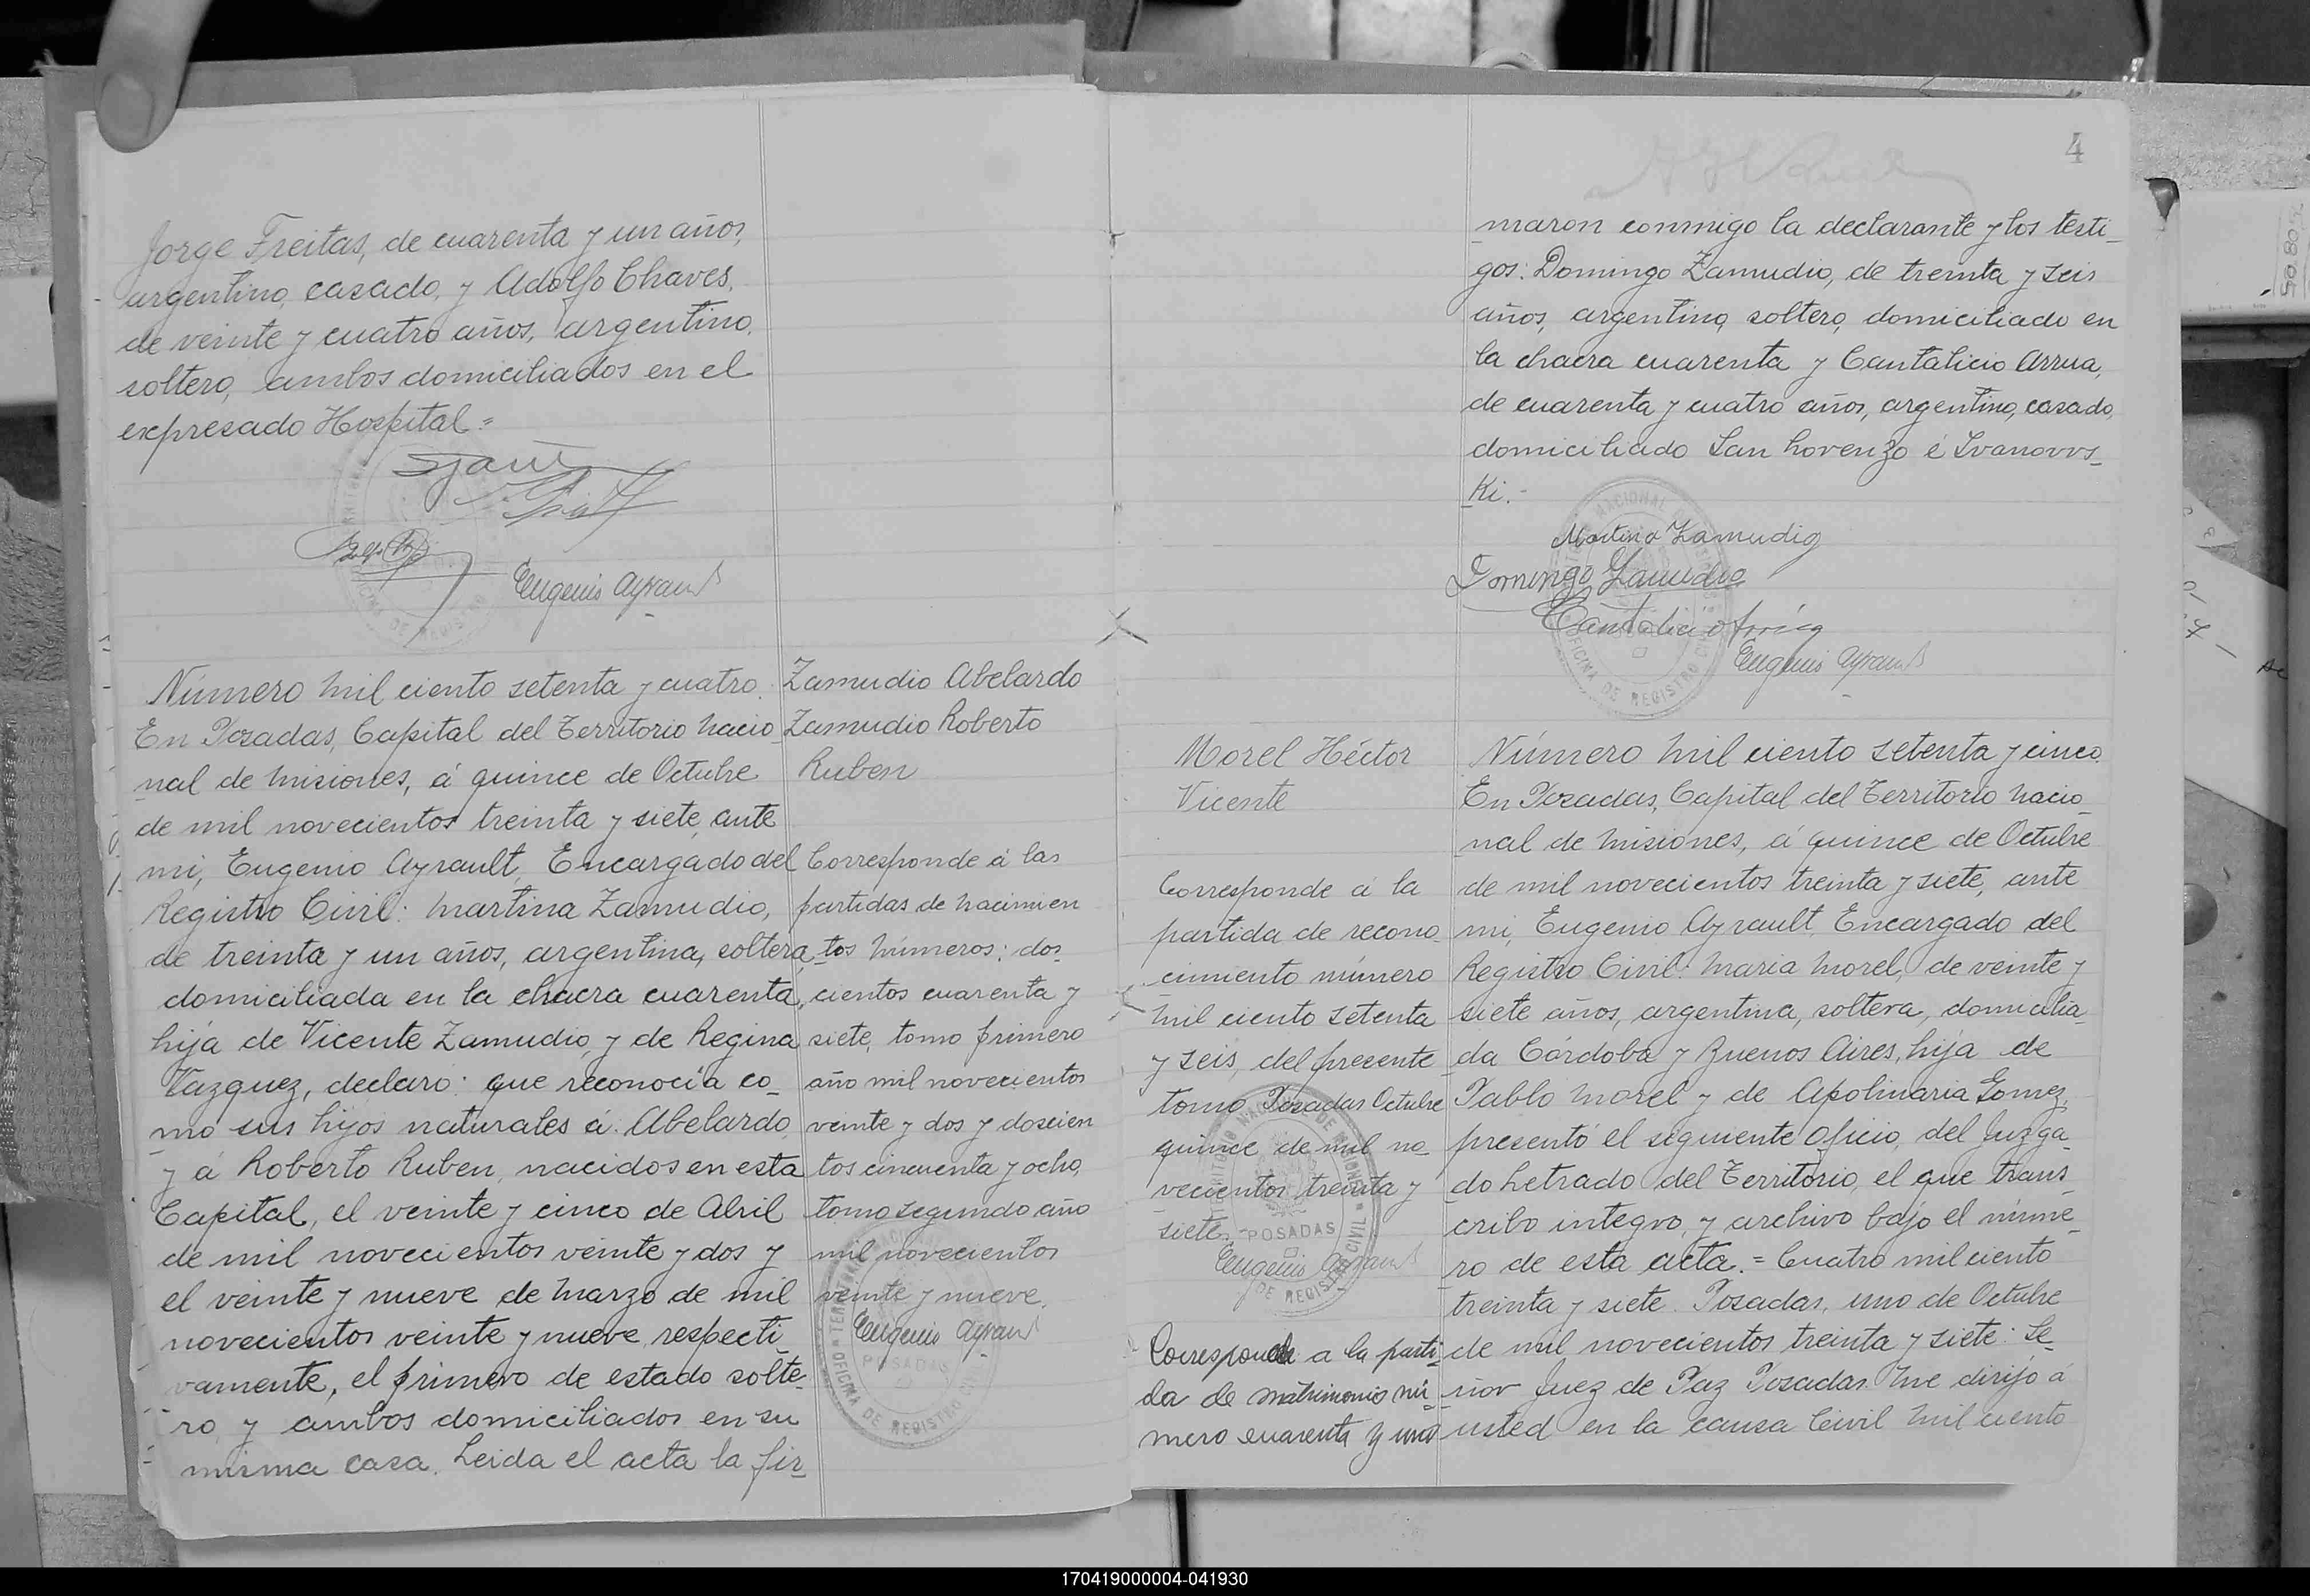 Jorge Freitas, de cuarenta y un años,
argentino, casado, y Adolfo Chaves,
de veinte y cuatro años, argentino,
soltero, ambos domiciliados en el
expresado Hospital =
Eugenio Ayrault
Número mil ciento setenta y cuatro.
En Posadas, Capital del Territorio Nacio_
nal de Misiones, á quince de Octubre
de mil novecientos treinta y siete, ante
mi, Eugenio Ayrault, Encargado del
Registro Civil: Martina Zamudio,
de treinta y un años, argentina, soltera,
domiciliada en la chacra cuarenta,
hija de Vicente Zamudio, y de Regina
Vazquez, declaró: que reconocía co_
mo sus hijos naturales á: Abelardo,
y á Roberto Ruben, nacidos en esta
Capital, el veinte y cinco de Abril
de mil novecientos veinte y dos y
el veinte y nueve de Marzo de mil
novecientos veinte y nueve, respecti_
vamente, el primero de estado solte_
ro, y ambos domiciliados en su
misma casa. Leida el acta la fir_
Zamudio Abelardo
Zamudio Roberto
Ruben
Corresponde á las
partidas de nacimien
tos números: dos_
cientos cuarenta y
siete, tomo primero
año mil novecientos
veinte y dos y doscien
tos cincuenta y ocho,
tomo segundo año
mil novecientos
veinte y nueve.
Eugenio Ayrault
POSADAS
OFICINA DE REGISTRO CIVIL
4
_maron conmigo la declarante y los testi_
gos: Domingo Zamudio, de treinta y seis
años, argentino, soltero, domiciliado en
la chacra cuarenta y Cantalicio Arrua,
de cuarenta y cuatro años, argentino, casado,
domiciliado San Lorenzo é Ivanovvs_
Ki.-
Martina Zamudio
Domingo Zamudio
Cantalicio
Eugenio Ayrault
OFICINA DE REGISTRO CIVIL
Morel Héctor
Vicente
Corresponde á la
partida de recono_
cimiento número
mil ciento setenta
y seis, del presente
tomo Posadas Octubre
quince de mil no_
vecientos treinta y
siete.-
POSADAS
Eugenio Ayrault
DE REGISTRO CIVIL
Corresponde a la parti_
da de matrimonio nú_
mero cuarenta y uno
Número mil ciento setenta y cinco.
En Posadas, Capital del Territorio Nacio_
nal de Misiones, á quince de Octubre
de mil novecientos treinta y siete, ante
mi, Eugenio Ayrault, Encargado del
Registro Civil: Maria Morel, de veinte y
siete años, argentina, soltera, domicilia_
da Córdoba y Buenos Aires, hija de
Pablo Morel y de Apolinaria Gomez,
presentó el siguiente Oficio, del Juzga_
do Letrado del Territorio, el que trans_
cribo integro, y archivo bajo el núme_
ro de esta acta.= Cuatro mil ciento
treinta y siete. Posadas, uno de Octubre
de mil novecientos treinta y siete: Se_
ñor Juez de Paz Posadas. Me dirijo á
usted en la causa Civil mil ciento
170419000004-041930